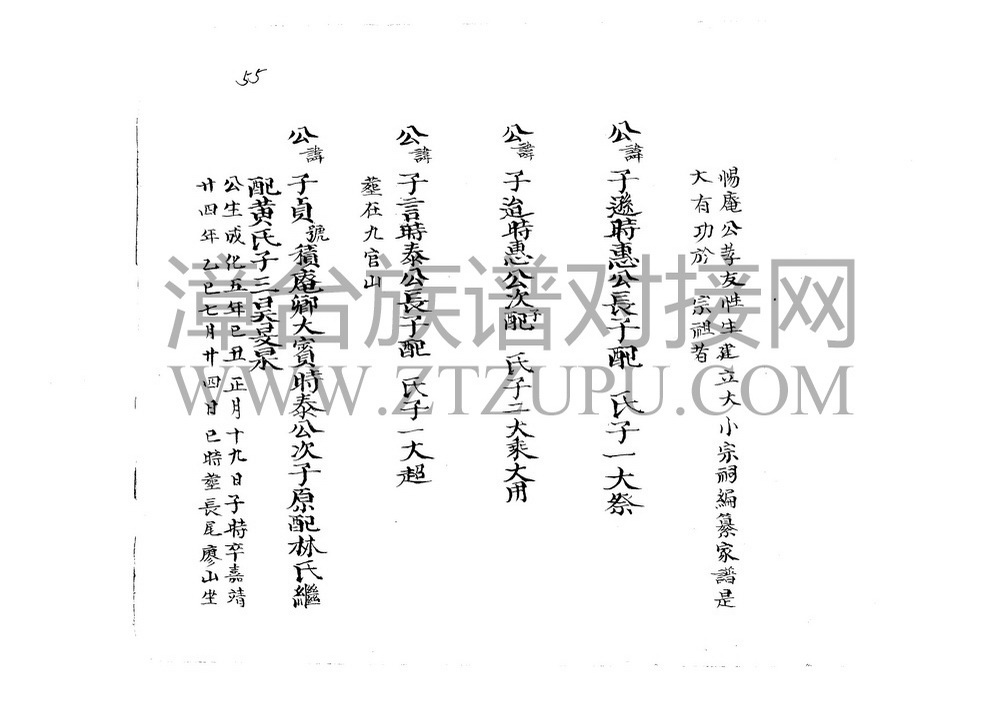 55
惕庵公孝友性生建立大小宗祠編纂家譜是
大有功於 宗祖者
公諱子遜時惠公長子配 氏子一大祭
公諱子迨時惠公次子配 氏子二大乘大用
公諱子言時泰公長子配 氏子一大超
葬在九官山
公諱子貞號積庵鄉大賓時泰公次子原配林氏繼
配黃氏子三昊旻泉
公生成化五年己丑正月十九日子時卒嘉靖
廿四年乙巳七月廿四日巳時葬長尾廖山坐
漳台族谱对接网
WWW.ZTZUPU.COM